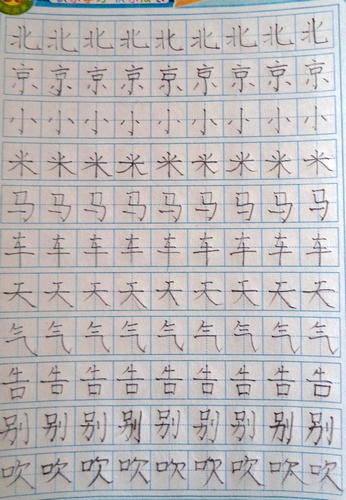 北北北北北北北北北
京京京京京京京京京
小小小小小小小小小
米米米米米米米米米
马马马马马马马马马
车车车车车车车车车
天天天天天天天天天
气气气气气气气气气
告告告告告告告告告
别别别别别别别别别
吹吹吹吹吹吹吹吹吹